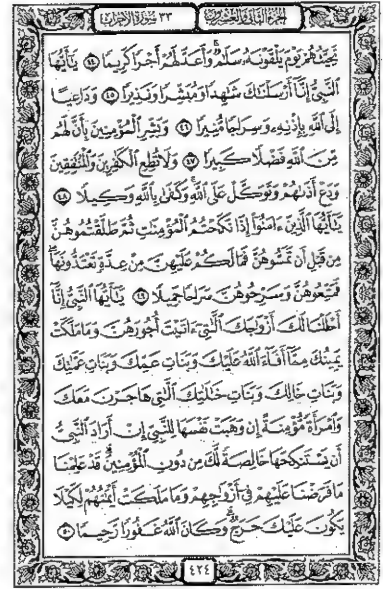 الجزء الثاني والعشرون ٣٣ سورة الأحزاب
تَحِيَّتُهُمْ يَوْمَ يَلْقَوْنَهُ سَلَامٌ وَأَعَدَّ لَهُمْ أَجْرًا كَرِيمًا ٤٤ يَا أَيُّهَا
النَّبِيُّ إِنَّا أَرْسَلْنَاكَ شَاهِدًا وَمُبَشِّرًا وَنَذِيرًا ٤٥ وَدَاعِيًا
إِلَى اللَّهِ بِإِذْنِهِ وَسِرَاجًا مُنِيرًا ٤٦ وَبَشِّرِ الْمُؤْمِنِينَ بِأَنَّ لَهُمْ
مِنَ اللَّهِ فَضْلًا كَبِيرًا ٤٧ وَلَا تُطِعِ الْكَافِرِينَ وَالْمُنَافِقِينَ
وَدَعْ أَذَاهُمْ وَتَوَكَّلْ عَلَى اللَّهِ وَكَفَى بِاللَّهِ وَكِيلًا ٤٨
يَا أَيُّهَا الَّذِينَ آمَنُوا إِذَا نَكَحْتُمُ الْمُؤْمِنَاتِ ثُمَّ طَلَّقْتُمُوهُنَّ
مِنْ قَبْلِ أَنْ تَمَسُّوهُنَّ فَمَا لَكُمْ عَلَيْهِنَّ مِنْ عِدَّةٍ تَعْتَدُّونَهَا
فَمَتِّعُوهُنَّ وَسَرِّحُوهُنَّ سَرَاحًا جَمِيلًا ٤٩ يَا أَيُّهَا النَّبِيُّ إِنَّا
أَحْلَلْنَا لَكَ أَزْوَاجَكَ اللَّاتِي آتَيْتَ أُجُورَهُنَّ وَمَا مَلَكَتْ
يَمِينُكَ مِمَّا أَفَاءَ اللَّهُ عَلَيْكَ وَبَنَاتِ عَمِّكَ وَبَنَاتِ عَمَّاتِكَ
وَبَنَاتِ خَالِكَ وَبَنَاتِ خَالَاتِكَ اللَّاتِي هَاجَرْنَ مَعَكَ
وَامْرَأَةً مُؤْمِنَةً إِنْ وَهَبَتْ نَفْسَهَا لِلنَّبِيِّ إِنْ أَرَادَ النَّبِيُّ
أَنْ يَسْتَنْكِحَهَا خَالِصَةً لَكَ مِنْ دُونِ الْمُؤْمِنِينَ قَدْ عَلِمْنَا
مَا فَرَضْنَا عَلَيْهِمْ فِي أَزْوَاجِهِمْ وَمَا مَلَكَتْ أَيْمَانُهُمْ لِكَيْلَا
يَكُونَ عَلَيْكَ حَرَجٌ وَكَانَ اللَّهُ غَفُورًا رَحِيمًا ٥٠
٤٢٤